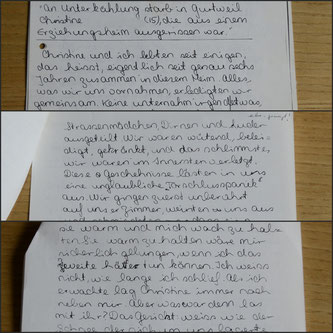 "An Unterkühlung starb in Gurtweil
Christine (15), die aus einem
Erziehungsheim ausgerissen war."
Christine und ich lebten seit einigen,
das heisst, eigendlich seit genau sechs
Jahren zusammen in diesem Heim. Alles,
was wir uns vornahmen, erledigten wir
gemeinsam. Keine unternahm irgendetwas,
Strassenmädchen, Dirnen und Luder
ausgeteilt. Wir waren wütend, belei-
digt, gekränkt, und das schlimmste,
wir waren im Innersten verletzt.
Diese Geschehnisse lösten in uns
eine unglaubliche "Torschlusspanik"
aus. Wir gingen zuerst unberührt
auf unser Zimmer, weinten uns aus
sie warm und mich wach zu hal-
ten. Sie warm zu halten wäre mir
sicherlich gelungen, wenn ich das
zweite hätte tun können. Ich weiss
nicht, wie lange ich schlief. Als ich
erwachte lag Christine immer noch
neben mir. Aber was war denn los
mit ihr? Das Gesicht weiss wie der
Schnee, der sich um uns lagerte